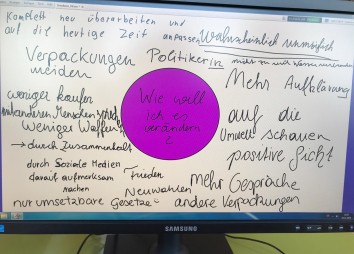 Komplett neu überarbeiten und
auf die heutige Zeit anpassen
Wahrscheinlich unmöglich
Verpackungen
meiden
Politikerin
Mehr Aufklärung
weniger kaufen
mit anderen Menschen
Weniger Waffen
→ durch Zusammenhalt
Wie will
ich es
verändern
?
auf die
Umwelt schauen
positive Sicht
durch Soziale Medien
darauf aufmerksam
machen
Frieden
Neuwahlen
mehr Gespräche
nur umsetzbare Gesetze
andere Verpackungen
SAMSUNG